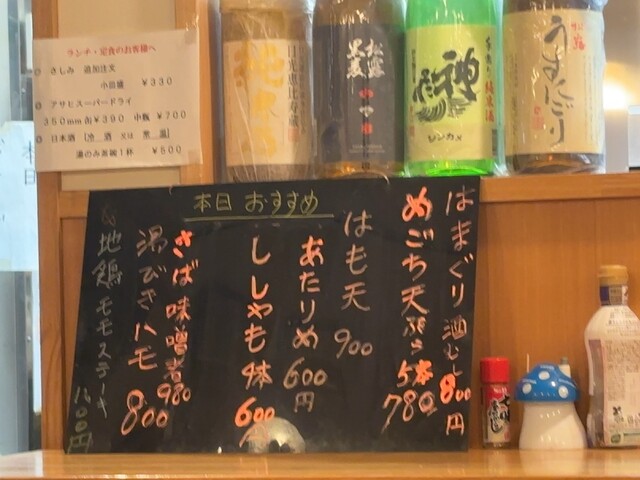 ランチ・定食のお客様へ
○ さしみ 追加注文
小皿盛 ¥330
○ アサヒスーパードライ
350mm缶¥390 中瓶 ¥700
○ 日本酒 [冷酒 又は 常温]
湯のみ茶碗1杯 ¥500
本日 おすすめ
はまぐり 酒むし 800円
めごち天ぷら 5本 780
はも天 900
あたりめ 600円
ししゃも 4本 600円
さば味噌煮 980
湯びきハモ 800
地鶏モモステーキ 1600円
うすにごり